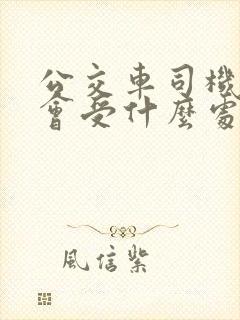 公交車司機
會受什麼處
風信紫